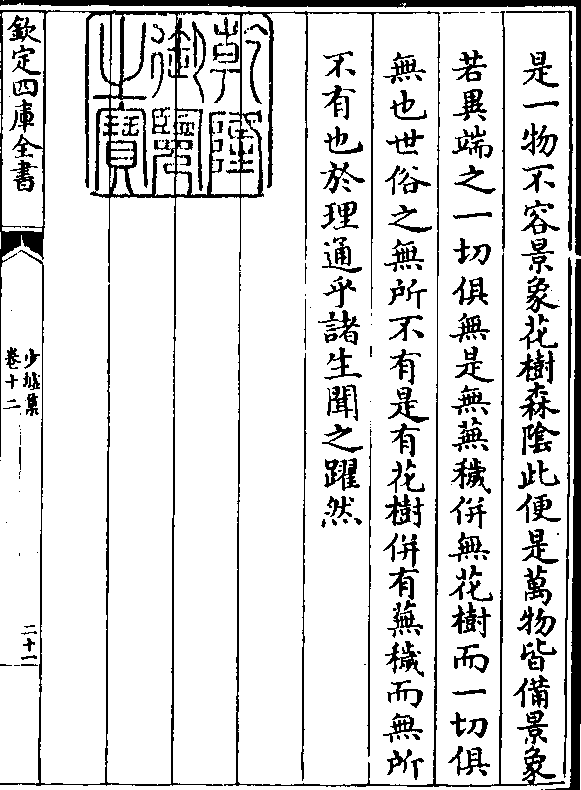 是一物不容景象花樹森陰此便是萬物皆備景象
若異端之一切俱無是無蕪穢併無花樹而一切俱
無也世俗之無所不有是有花樹併有蕪穢而無所
不有也於理通乎諸生聞之躍然
乾隆
御覽
之寶
欽定四庫全書
少墟集
卷十二
二十一